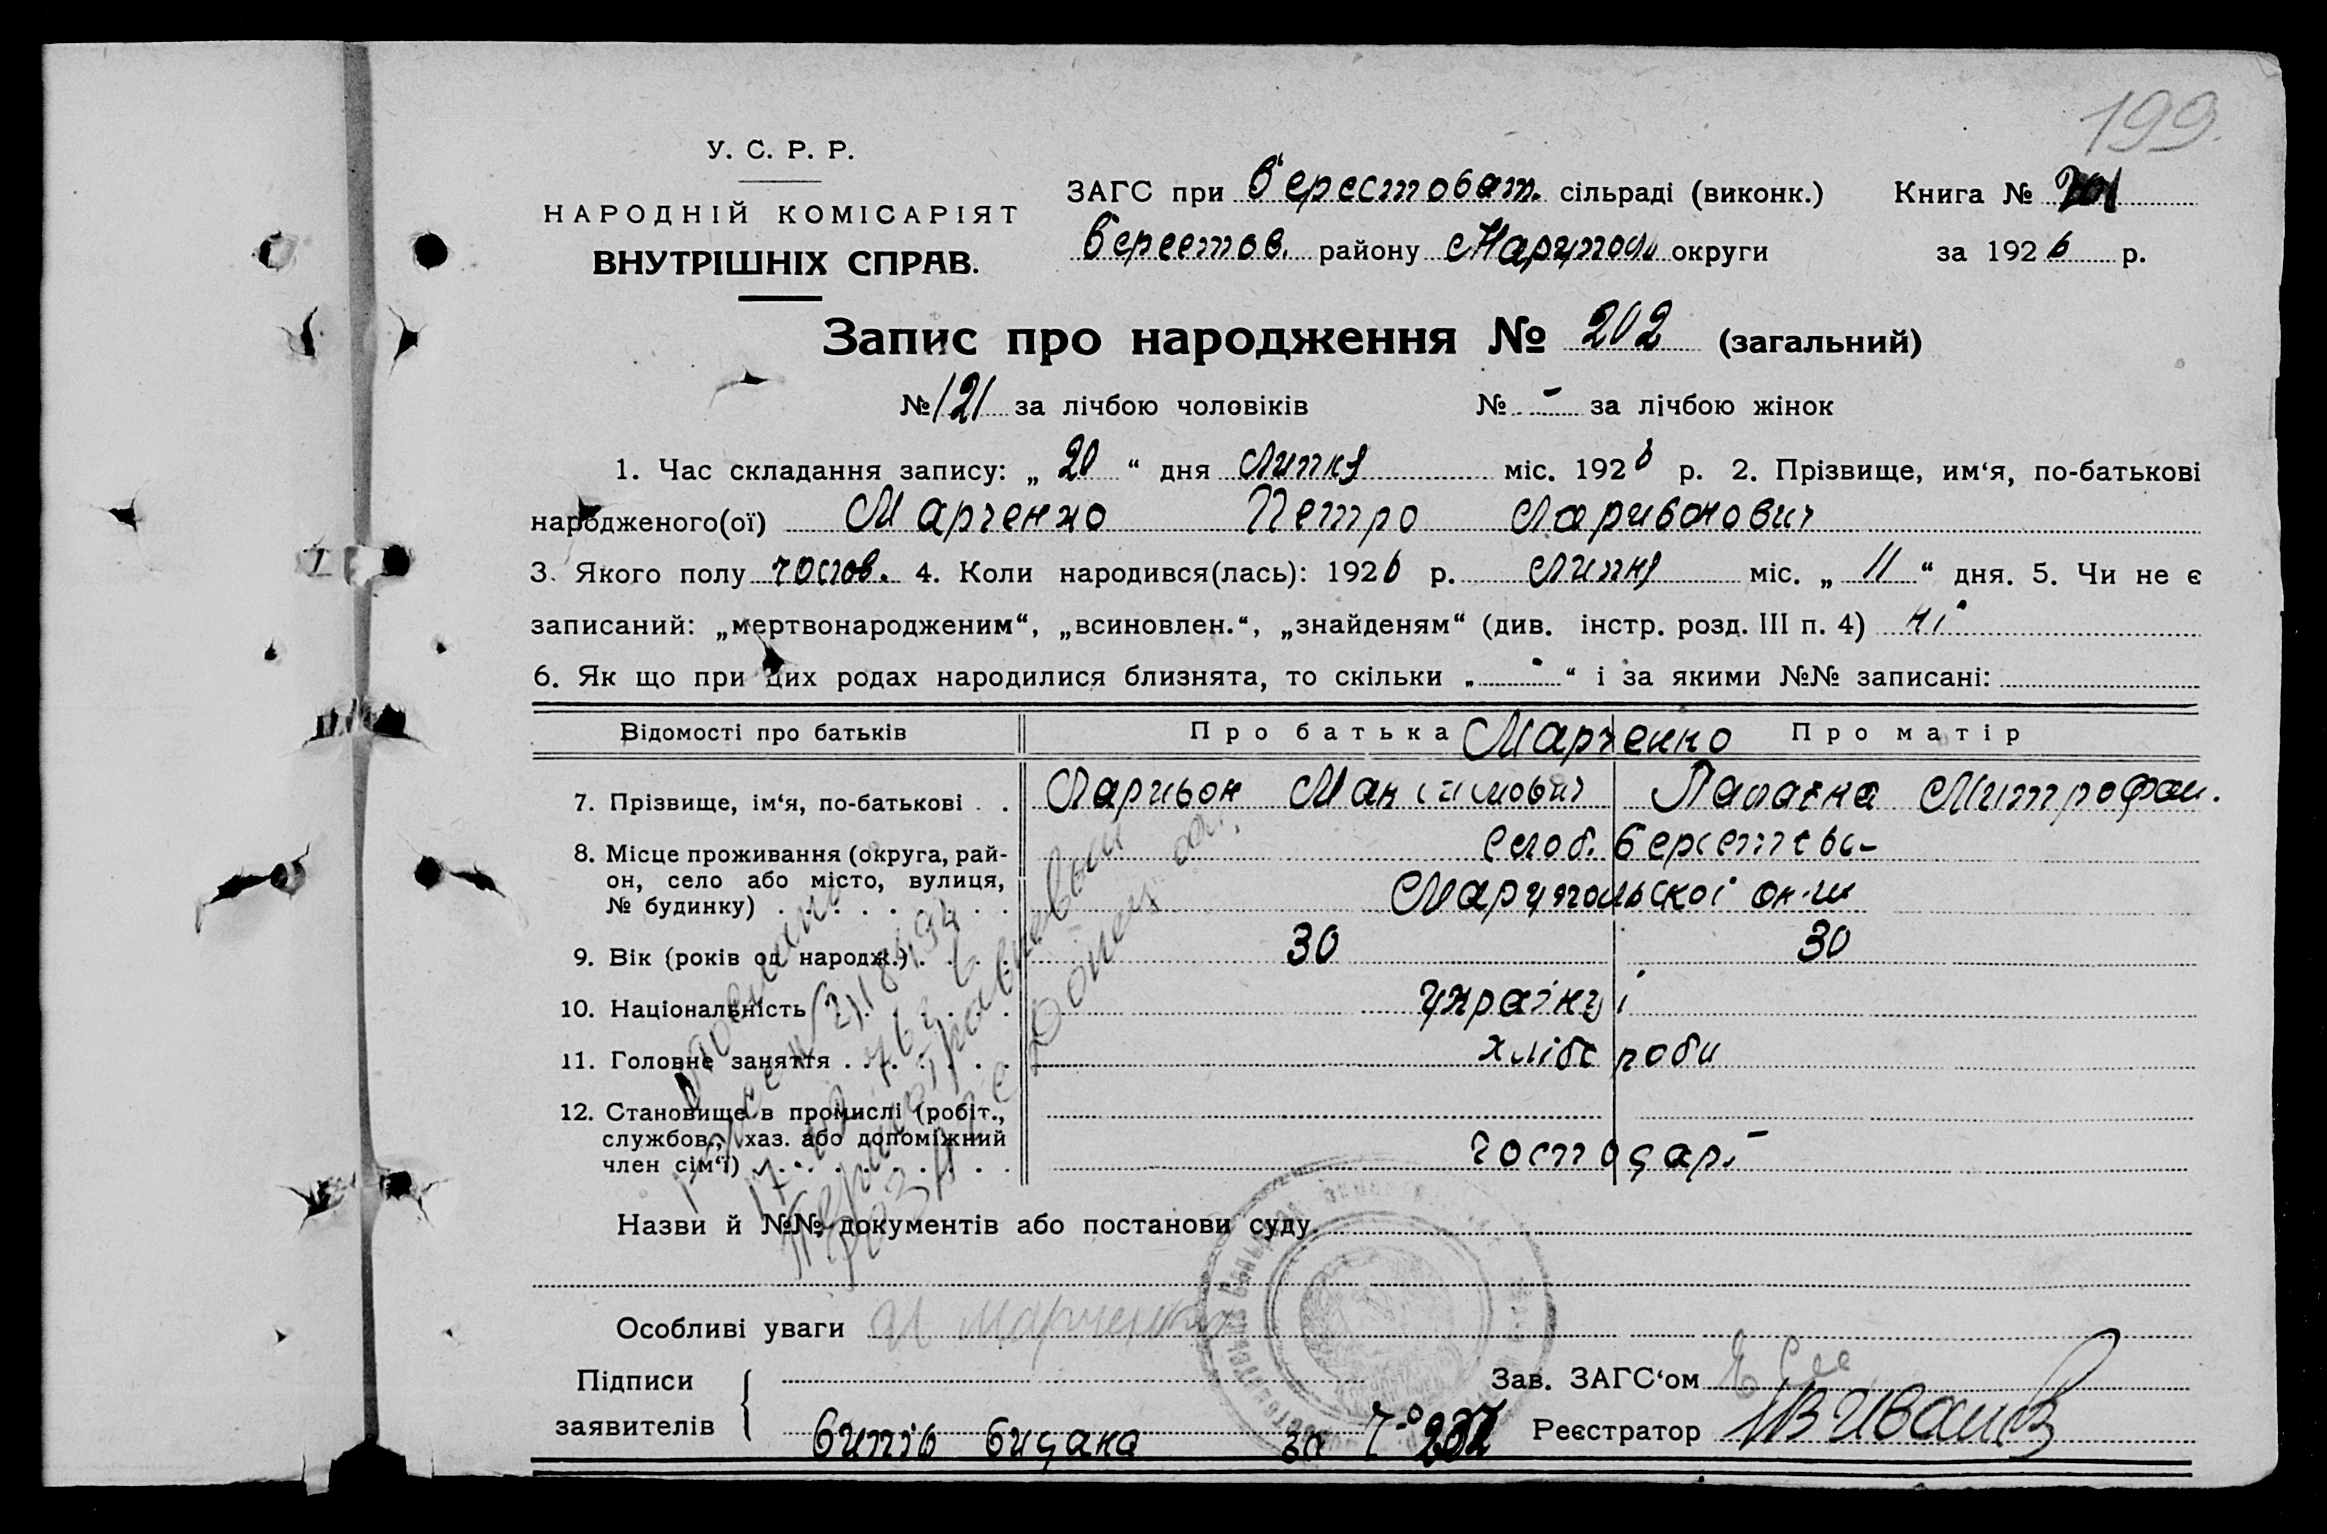 199.
У. С. Р. Р.
НАРОДНІЙ КОМІСАРІЯТ
ВНУТРІШНІХ СПРАВ.
ЗАГС при Берестоват. сільраді (виконк.) Книга №
Берестов. району Маріупол. округи за 1926 р.
Запис про народження № 202 (загальний)
№ 121 за лічбою чоловіків № - за лічбою жінок
1. Час складання запису: „ 20 “ дня Липня міс. 1926 р. 2. Прізвище, им‘я, по-батькові
народженого(ої) Марченко Петро Ларивонович
3. Якого полу чолов. 4. Коли народився(лась): 1926 р. Липня міс. „ 11 “ дня. 5. Чи не є
записаний: „мертвонародженим“, „всиновлен.“, „знайденям“ (див. інстр. розд. III п. 4) ні
6. Як що при цих родах народилися близнята, то скільки „ - “ і за якими №№ записані:
Відомості про батьків Про батька Марченко Про матір
7. Прізвище, ім‘я, по-батькові . . Ларивон Максимович Палажка Митрофан.
8. Місце проживання (округа, рай-
он, село або місто, вулиця,
№ будинку) . . . . . . . . .
Маріупольскої ок-ги
9. Вік (років од народж.) . . . . 30 30
10. Національність . . . . . . . українці
11. Головне заняття . . . . . . . хлібороби
12. Становище в промислі (робіт.,
службов., хаз. або допоміжний
член сім‘ї) . . . . . . . . . . господарі
Назви й №№ документів або постанови суду.
Особливі уваги Марченко
Підписи
заявителів
Витяг видано за № 237
Зав. ЗАГС‘ом
Реєстратор